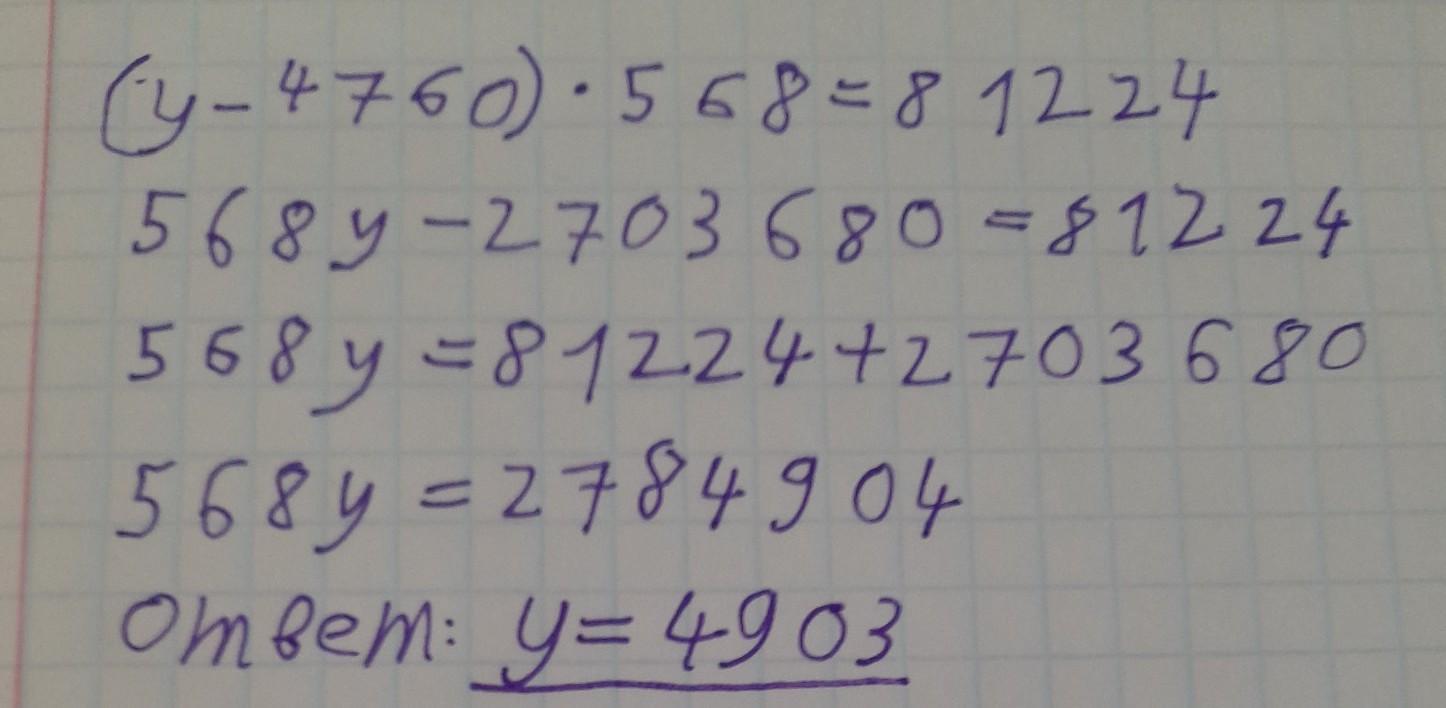 (y-4760)·568=81224
568y-2703680=81224
568y=81224+2703680
568y=2784904
Ответ: y=4903